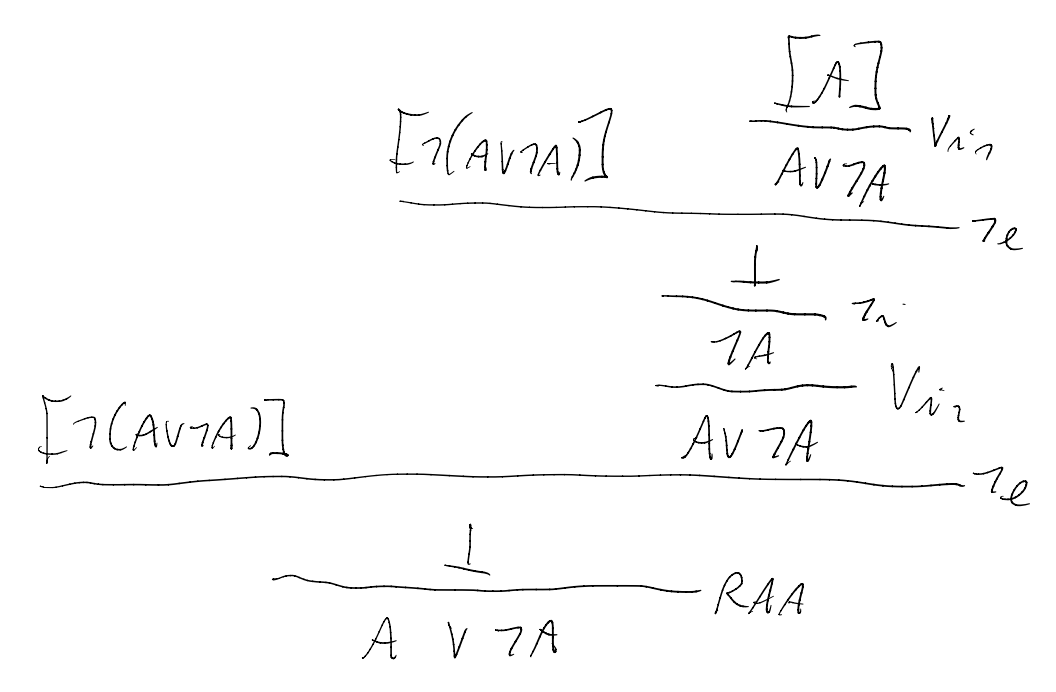 [A]
[¬(A∨¬A)] ∨i₁
A∨¬A
¬e
⊥
¬i
¬A
∨i₂
[¬(A∨¬A)] A∨¬A
¬e
⊥
RAA
A ∨ ¬A